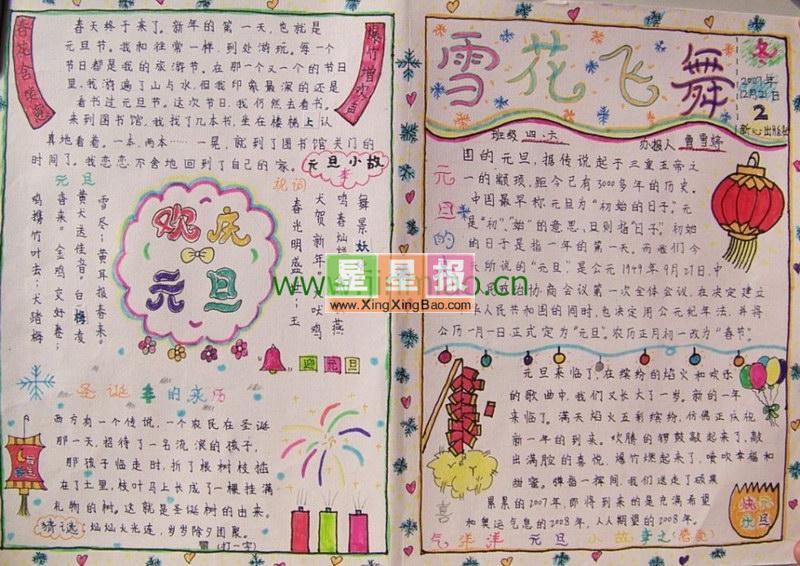 春天终于来了。新年的第一天,也就是
元旦节。我和往常一样,到处游玩。每一个
节日都是我的旅游节。在那一个又一个的节日
里,我游遍了山与水,但我印象最深的还是
看书过元旦节。这次节日,我仍然去看书。
来到图书馆,我找了几本书,坐在楼梯上认
真地看着。一本,两本…… 一晃,就到了图书馆关门的
时间了。我恋恋不舍地回到了自己的家。
元旦小故
事
元旦
祝词
雪尽;黄耳报春来。
黄犬送佳音。白梅凌
春来。金鸡交好卷;
鸡携竹叶去;犬踏梅
欢庆
元旦
迎元旦
圣诞季的来历
西方有一个传说,一个农民在圣诞
那一天,招待了一名流浪的孩子,
那孩子临走时,折了根树枝插
在了土里,枝叶马上长成了一棵挂满
礼物的树。这就是圣诞树的由来。
猜谜:灿灿火光连,岁岁除夕团聚。
(打一字)
雪花飞舞
冬
2007年
12月21日
2
班级 四.六
办报人 曹雪婷
元旦的
国的元旦,据传说起于三皇五帝之
一的颛顼,距今已有3000多年的历史。
中国最早称元旦为“初始的日子”。元
是“初”,“始”的意思,旦则指“日子”。初始
的日子是指一年的第一天。而我们今
天所说的“元旦”是公元1949年9月27日,中
治协商会议第一次全体会议,在决定建立
人民共和国的同时,也决定用公元纪年法,并将
公历一月一日正式定为“元旦”。农历正月初一改为“春节”。
星星报
www.XingXingBao.com
元旦来临了,在缤纷的焰火和欢乐
的歌曲中,我们又长大了一岁。新的一年
来临了。满天焰火五彩缤纷,仿佛正庆祝
新一年的到来。欢腾的锣鼓敲起来了,敲
出满腔的喜悦,爆竹燃起来了,嗅吹幸福和
甜蜜。弹指一挥间,我们送走了硕果
累累的2007年,即将到来的是充满希望
和奥运气息的2008年,人人期望的2008年。
喜
气洋洋
元旦小故事之
快乐
元旦